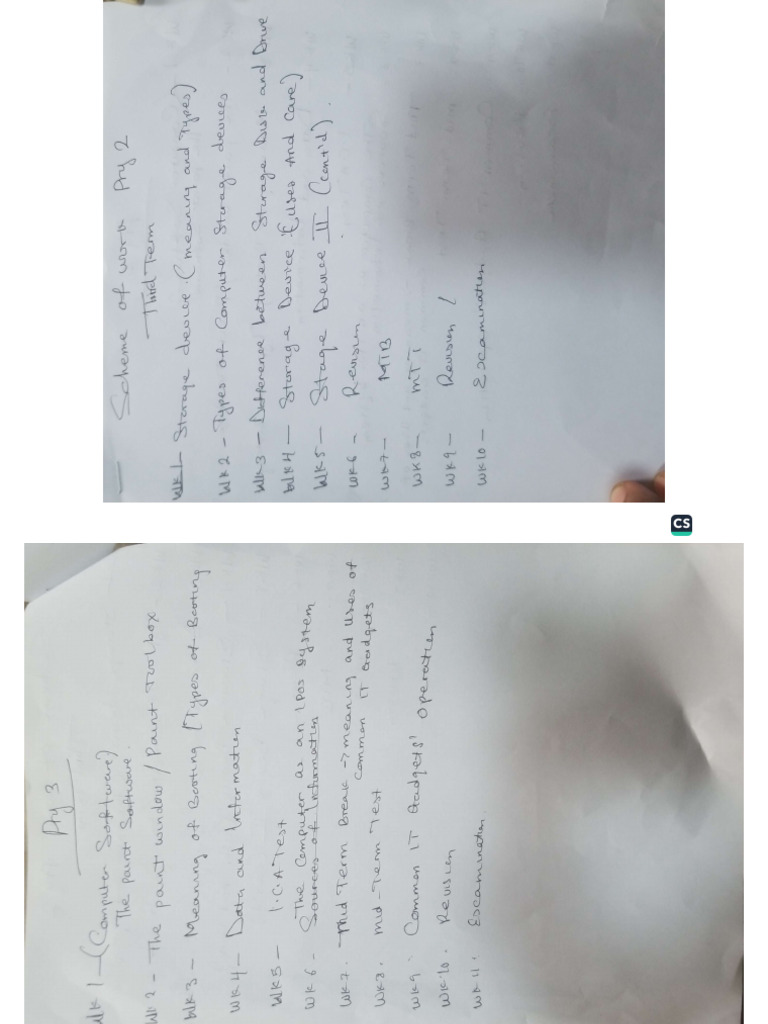 Scheme of work Pry 2
Third Term
WK1 Storage device (meaning and Types)
WK2 - Types of Computer Storage devices
WK3 - Difference between Storage Disk and Drive
WK4 - Storage Device (Uses And Care)
WK5 - Stage Device II (Cont'd).
WK6 - Revision
WK7 - MTB
WK8 - MTT
WK9 - Revision
WK10 - Examination
CS
Pry 3
WK 1 - (Computer Software)
The paint Software.
WK 2 - The paint window / Paint Toolbox
WK3 - Meaning of Booting (Types of Booting
WK4 - Data and Information
WK5 - I.C.A Test
The Computer as an IPOS System
WK 6 - Sources of Information
WK7. Mid Term Break → meaning and Uses of
Common IT Gadgets
WK8. Mid-Term Test
WK9. Common IT Gadgets' Operation
WK10. Revision
WK11. Examination.